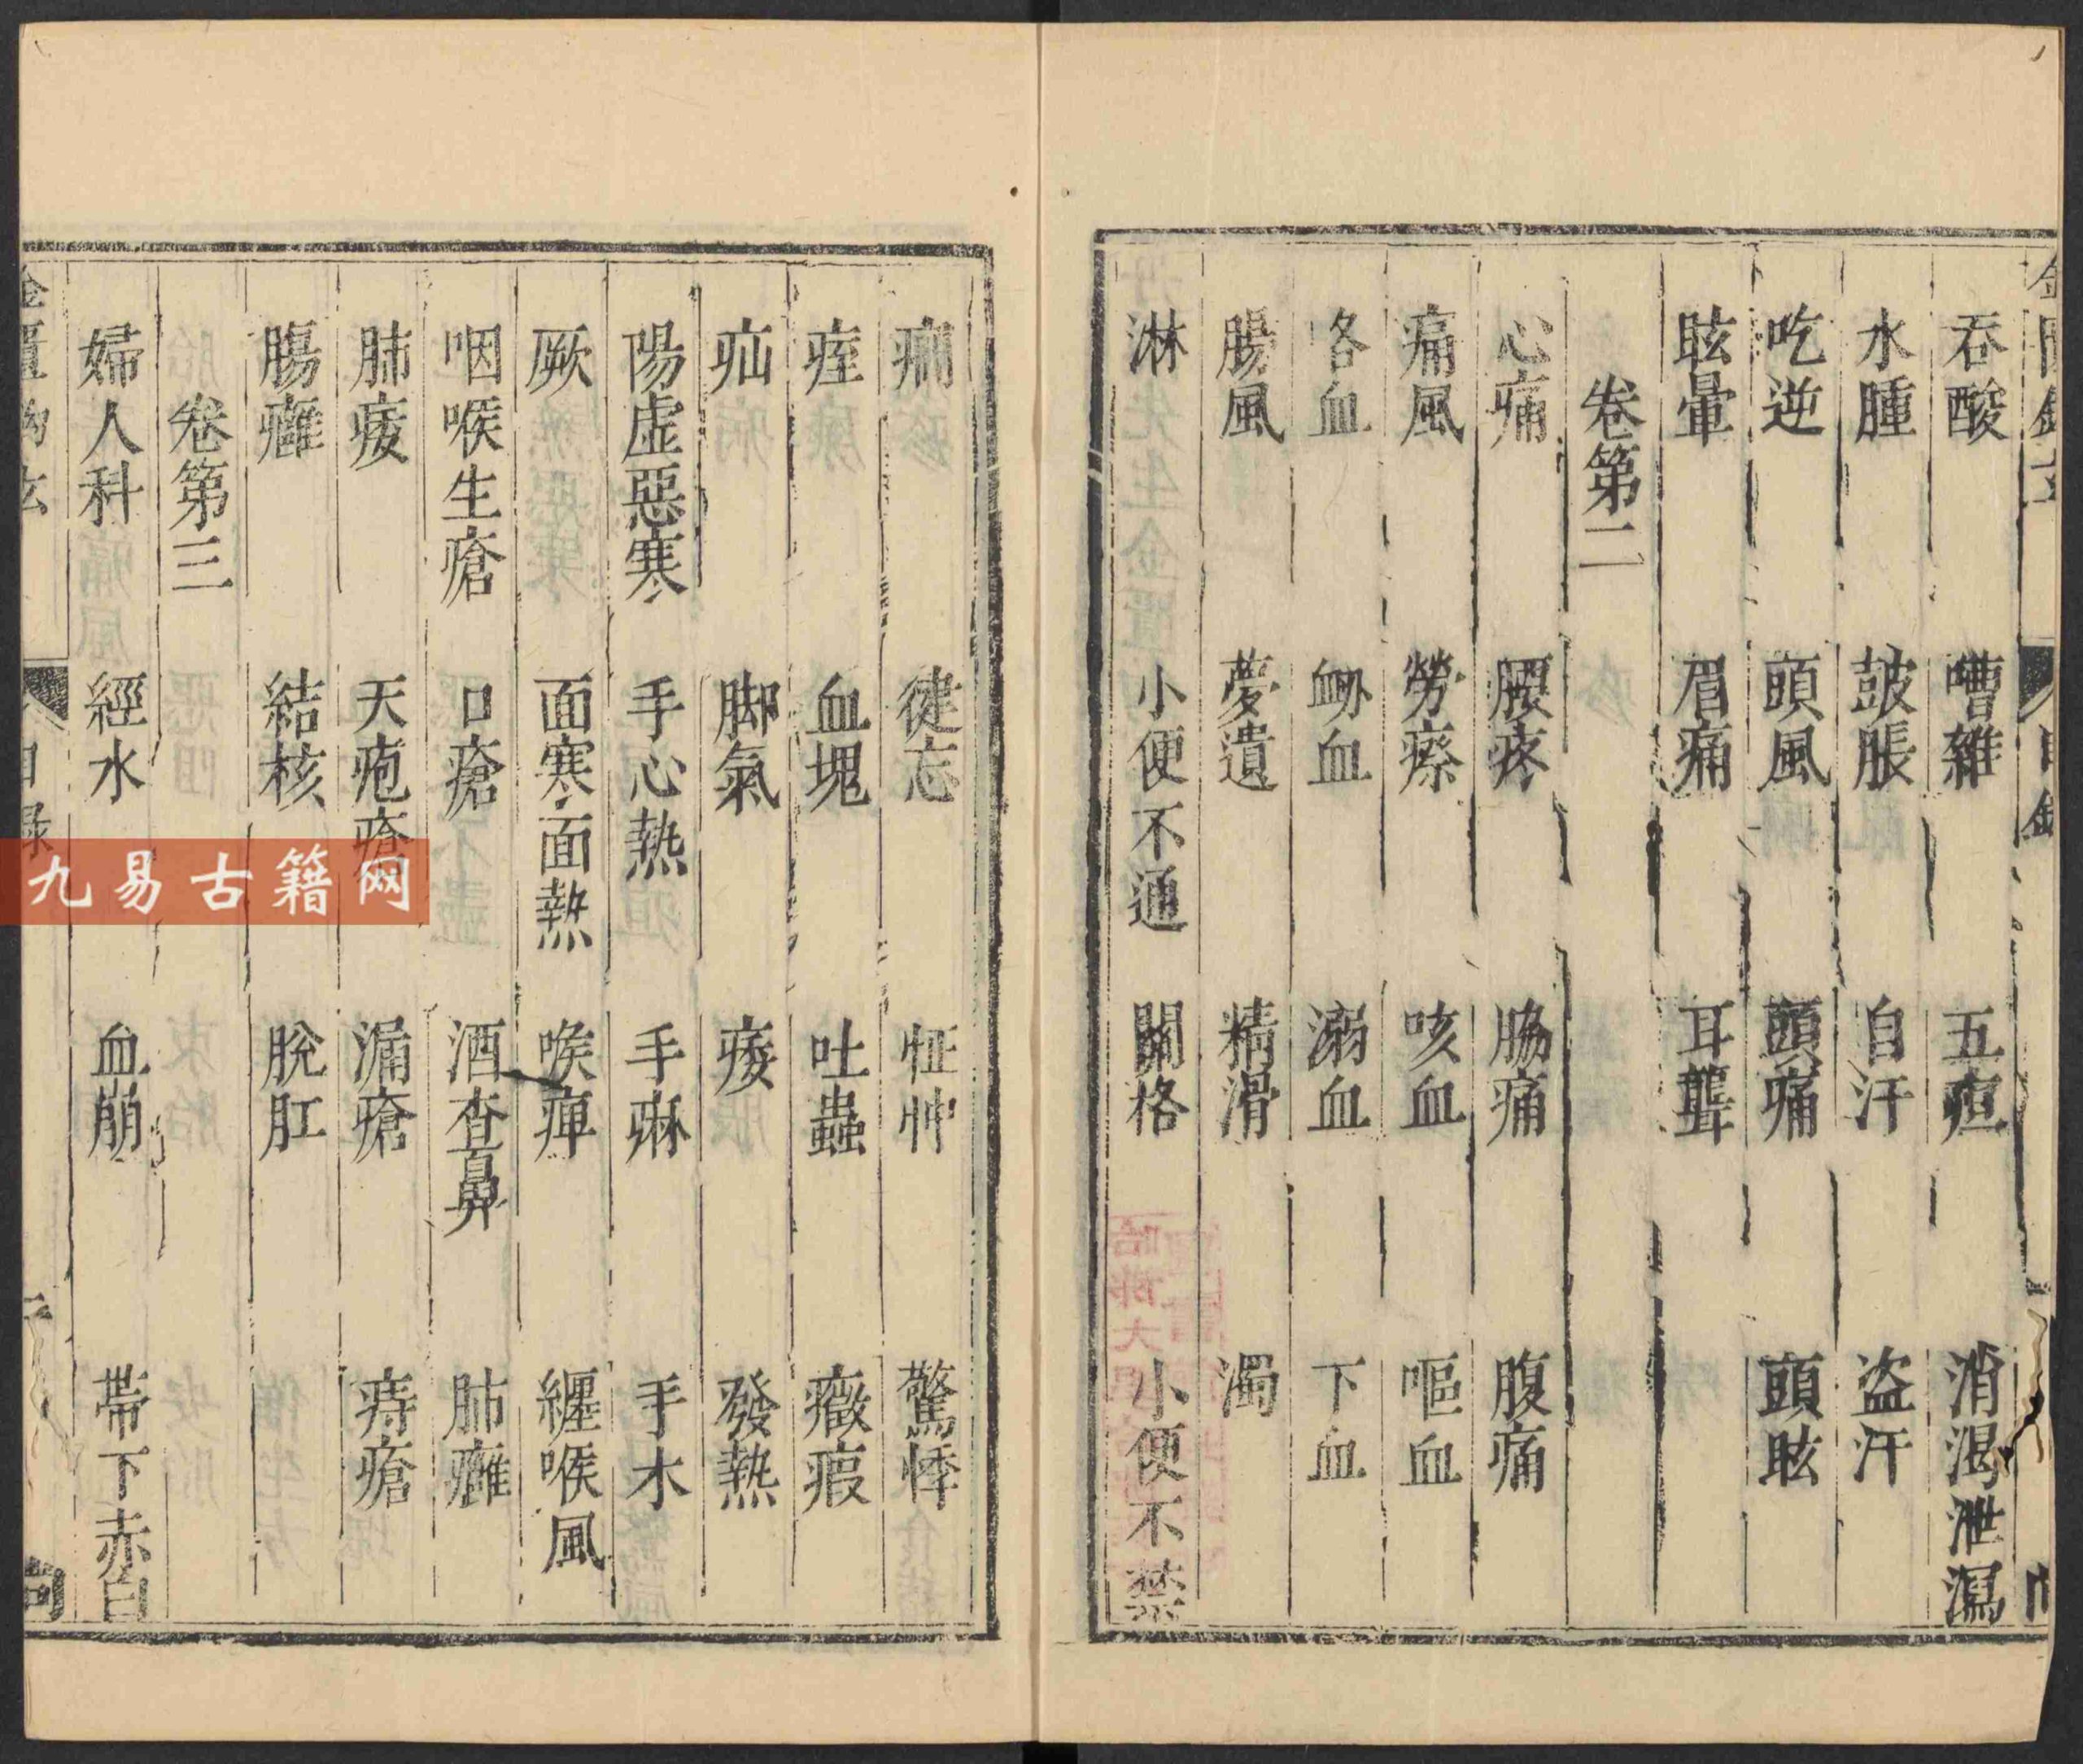 吞酸 嘈雜 五疸 消渴泄瀉
水腫 皷脹 自汗 盗汗
吃逆 頭風 頭痛 頭眩
眩暈 眉痛 耳聾
卷第二
心痛 腰疼 脇痛 腹痛
痛風 勞瘵 咳血 嘔血
咯血 衂血 溺血 下血
腸風 夢遺 精滑 濁
淋 小便不通 關格 小便不禁
癎 健忘 怔忡 驚悸
痓 血塊 吐蟲 癥瘕
疝 脚氣 痿 發熱
陽虛惡寒 手心熱 手麻 手木
厥 面寒面熱 喉痺 纏喉風
咽喉生瘡 口瘡 酒查鼻 肺癰
肺痿 天疱瘡 漏瘡 痔瘡
腸癰 結核 脫肛
卷第三
婦人科 經水 血崩 帶下赤白
金匱鉤玄 目録 二
九易古籍网